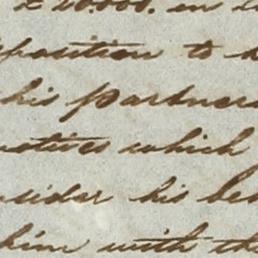 £ 20.000. in
position to
his partners
motives which
nsider his be
him with the